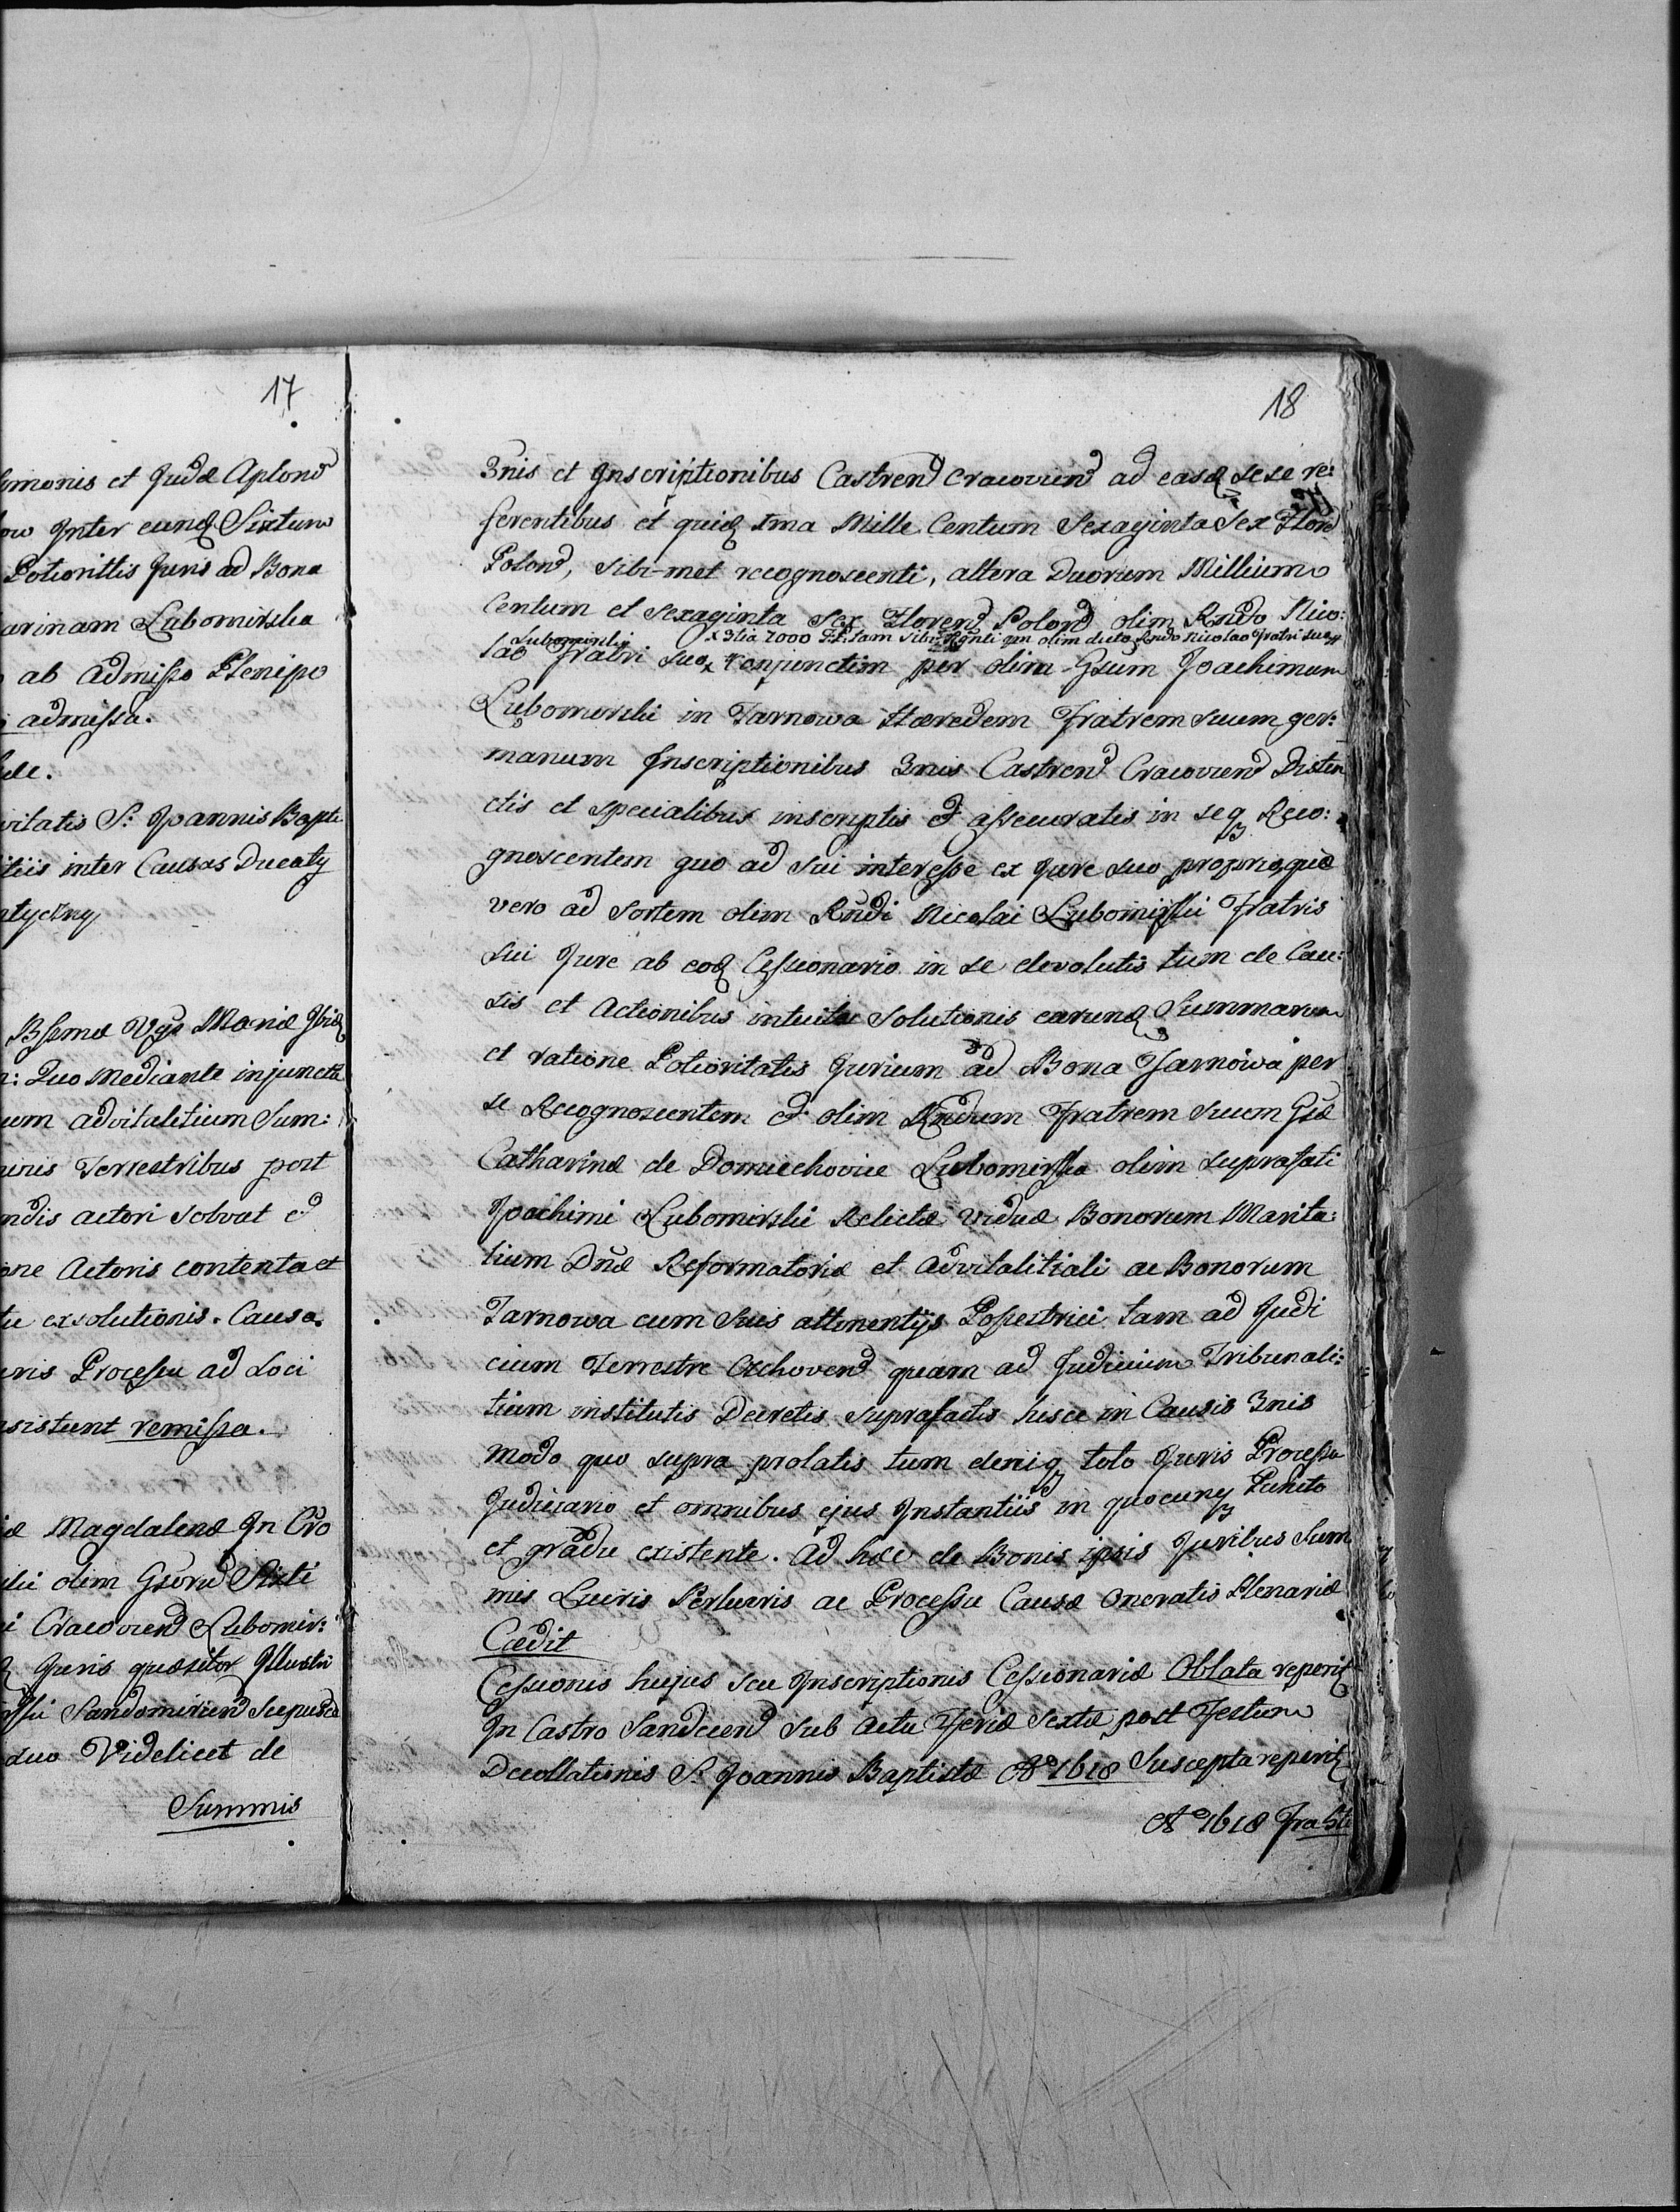 17
imonis et Judæ Aplonũ
Inter eundꝫ Sixtum
Potiorittis Juris ad Bona
arinam Lubomirska
ab Admisso Plenipo
admissa.
vitatis S: Joannis Bapti
itiis inter Causas Ducatꝫ
Bssmæ Vgs Mariæ
: Quo Mediante injuncta
um advitalitium Sum:
Terrestribus post
ndis actori solvat
one Actoris contenta et
tu exsolutionis. Causa
uris Processu ad Loci
sistunt remissa.
æ Magdalenæ In Cro
olim Gsorũ Sixti
Cracovienˀ Lubomir:
Juris quæsitor Illustri
Sandomirienˀ Scepusien
suo Videlicet de
Summis
18
3nis et Inscriptionibus Castrenˀ Cracovienˀ ad easdꝫ sese re:
ferentibus et quidꝫ 1ma Mille Centum Sexaginta Sex Florˀ
Polonˀ, sibi-met recognoscenti, altera Duorum Millium
Centum et Sexaginta Sex Florenˀ Polonˀ olim Rndo Nico:
Lubomirski x 3tia 2000 Fl: tam sibi Rgnti qm olim dicto Rndo Nicolao Fratri suo
lao Fratri suo x conjunctim per olim Gsum Joachimum
Lubomirski in Tarnowa Hæredem Fratrem suum ger:
manum Inscriptionibus 3nis Castrenˀ Cracovienˀ Distin
ctis et specialibus inscriptis & assecuratis in seqꝫ Reco:
gnoscentem quo ad sui interesse ex Jure suo proprio, quo
vero ad sortem olim Rndi Nicolai Lubomirski Fratris
sui Jure ab eodꝫ Cessionario in se devolutis tum de Cau:
sis et Actionibus intuitu Solutionis earundꝫ Summarum
et ratione Potioritatis Jurium ad Bona Tarnowa per
se Recognoscentem & olim Rndum Fratrem suum Gsæ
Catharinæ de Domiechowice Lubomirska olim suprafati
Joachimi Lubomirski Relictæ Viduæ Bonorum Marita:
lium Dnæ Reformatoriæ et advitalitiali ac Bonorum
Tarnowa cum suis attinentijs Possestrici tam ad Judi
cium Terrestre Czchovenˀ quam ad Judicium Tribunali:
tium institutis Decretis suprafactis hisce in Causis 3nis
modo quo supra prolatis tum deniqꝫ toto Juris Processu
Judiciario et omnibus ejus Instantiis in quocunqꝫ Puncto
et gradu existente. Ad hæc de Bonis ipsis Juribus Sum
mis Lucris Perlucris ac Processu Causæ Oneratis Plenariæ
Cædit
Cessionis hujus seu Inscriptionis Cessionariæ Oblata reperitꝫ
In Castro Sandecenˀ sub actu Feriæ Sextæ post Festum
Decollationis S. Joannis Baptistæ Aº 1618 Suscepta reperitꝫ
Aº 1618 Fra 5ti